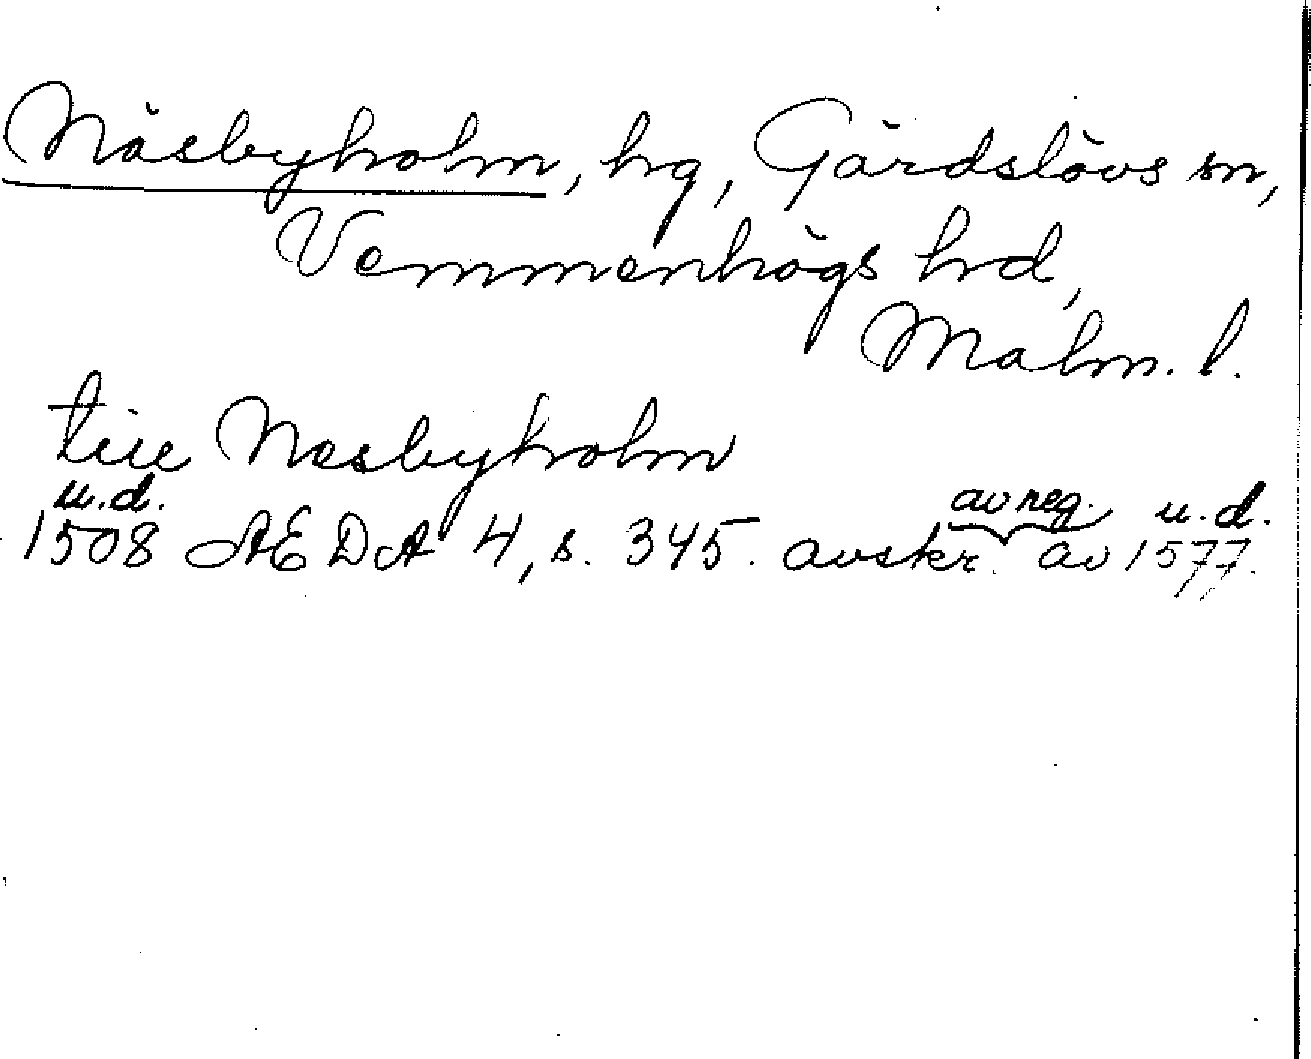 Näsbyholm, hg, Gärdslövs sn,
Vemmenhögs hrd,
Malm. l.
till Nesbyholm
u.d. av reg. u.d.
1508 ÆDA 4, s. 345. avskr. av 1577.